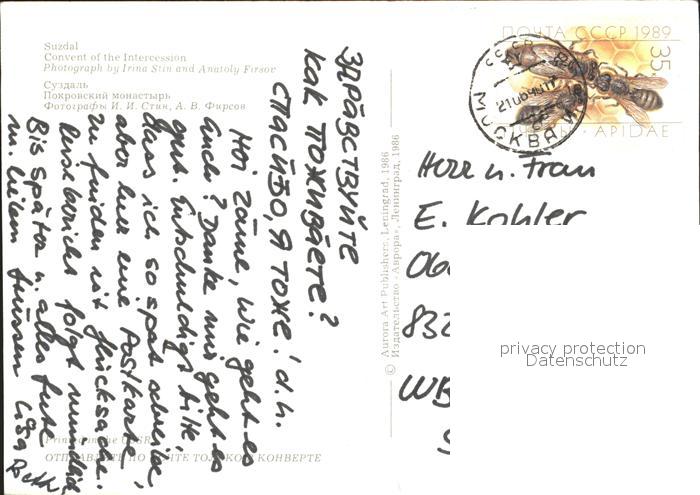 Suzdal
Convent of the Intercession
Photograph by Irina Stin and Anatoly Firsov
Суздаль
Покровский монастырь
Фотографы И. И. Стин, А. В. Фирсов
ПОЧТА СССР 1989
35к
APIDAE
СССР
МОСКВА
ЗДРАВСТВУЙТЕ
КАК ПОЖИВАЕТЕ?
СПАСИБО, Я ТОЖЕ! d.h.
Hoi zäme, wie geht es
Euch? Danke mir geht es
gut. Entschuldigt bitte,
dass ich so spät schreibe,
aber nur eine Postkarte
zu finden ist glücksache.
Reisebericht folgt mündlich
Bis später u. alles Gute
m. lieben Grüssen Lisa
© Aurora Art Publishers, Leningrad, 1986
Издательство «Аврора», Ленинград, 1986
Herr u. Frau
E. Kohler
832
WB
privacy protection
Datenschutz
Printed in the USSR
ОТПРАВЛЯТЬ ПО ПОЧТЕ ТОЛЬКО В КОНВЕРТЕ